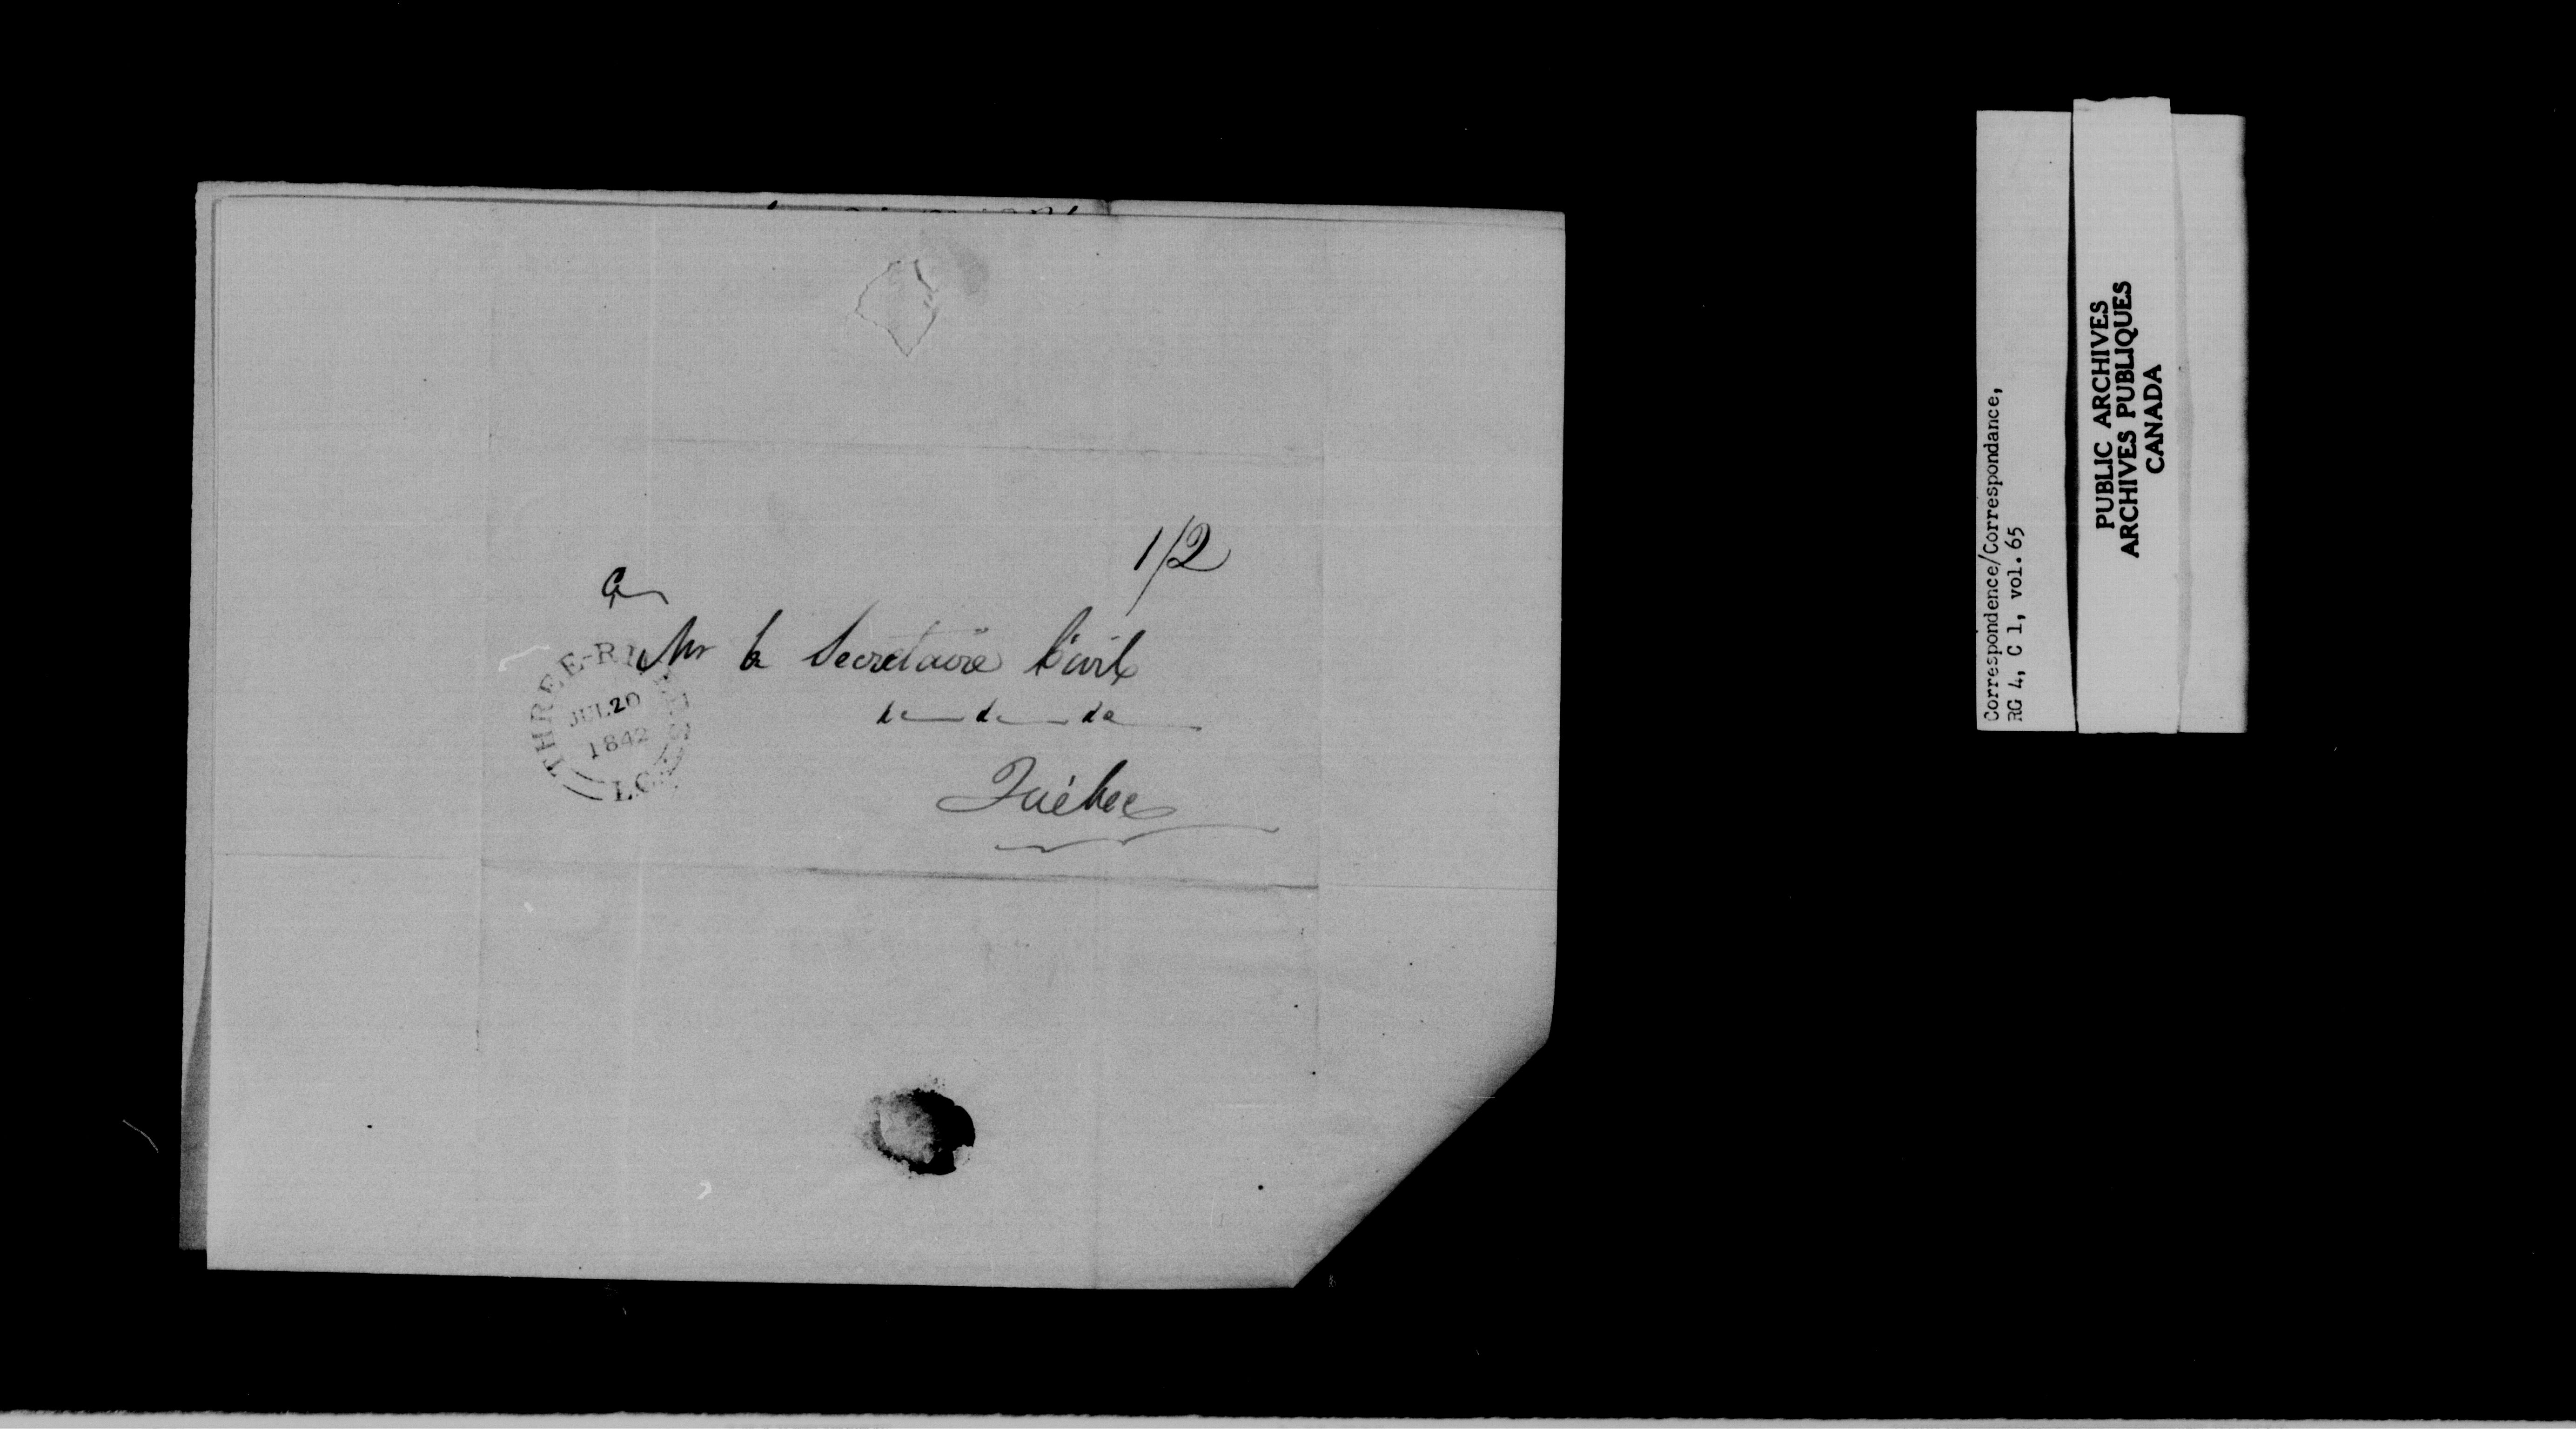 1/2
Mr le Secretaire Civil
de de de
Québec
THREE-RIVERS
JUL 20
1842
L.C.
Correspondence/Correspondance,
RG 4, C 1, vol. 65
PUBLIC ARCHIVES
ARCHIVES PUBLIQUES
CANADA